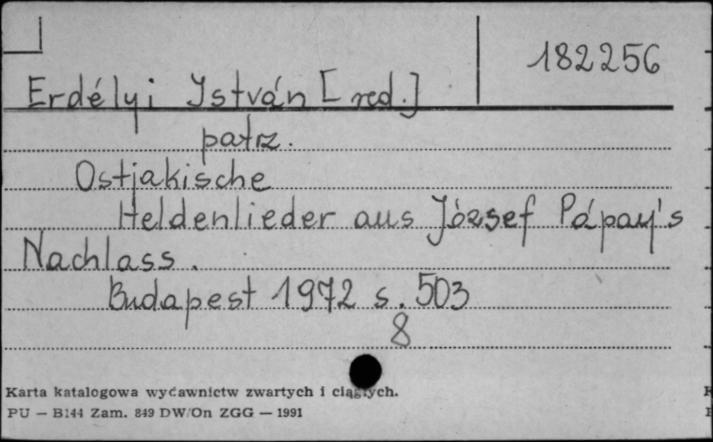 182256
Erdélyi István [red.]
patrz.
Ostjakische
Heldenlieder aus József Pápay's
Nachlass.
Budapest 1972 s. 503
8
Karta katalogowa wydawnictw zwartych i ciągłych.
PU — B144 Zam. 849 DW/On ZGG — 1991